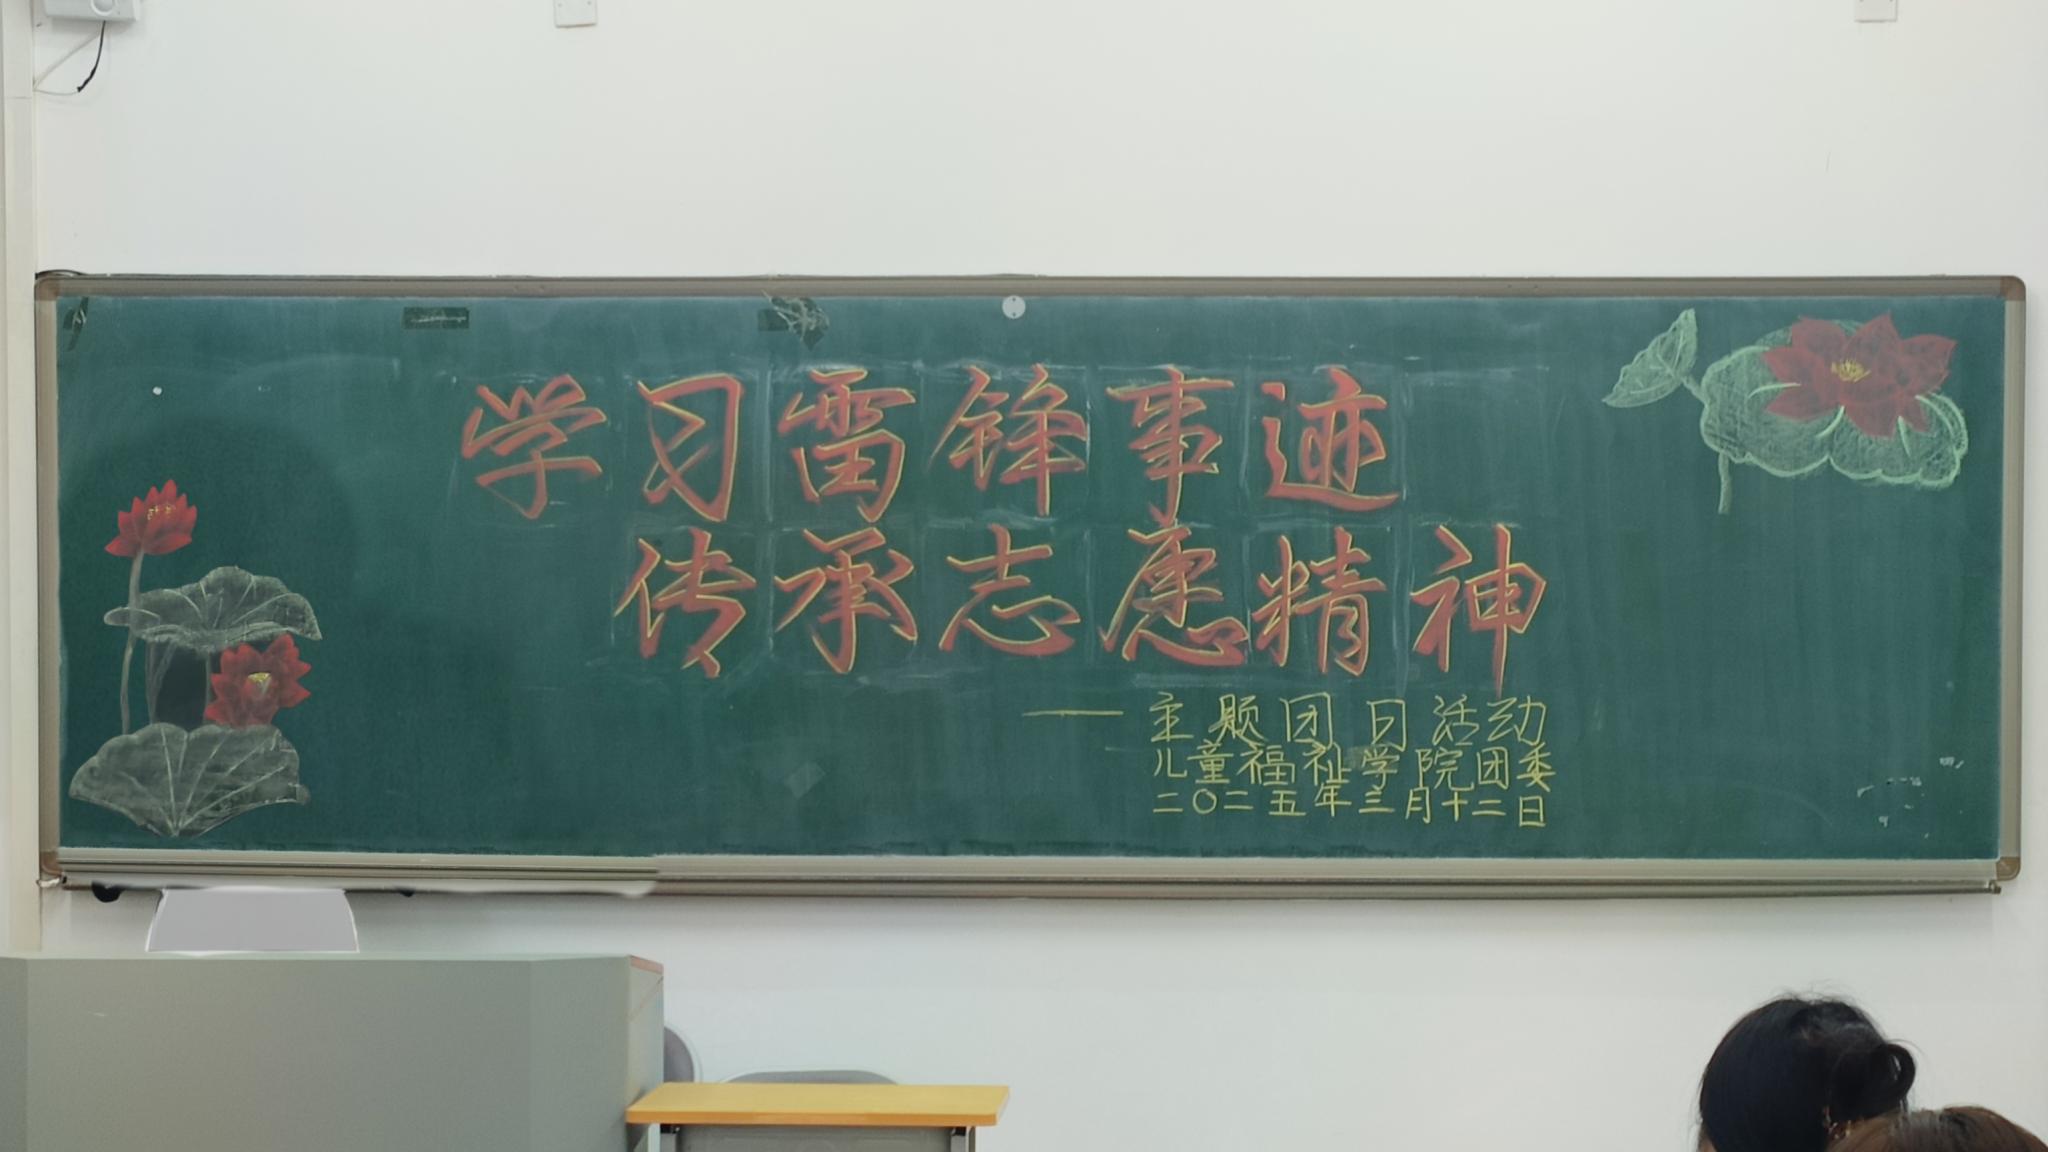 学习雷锋事迹
传承志愿精神
——主题团日活动
儿童福祉学院团委
二〇二五年三月十二日